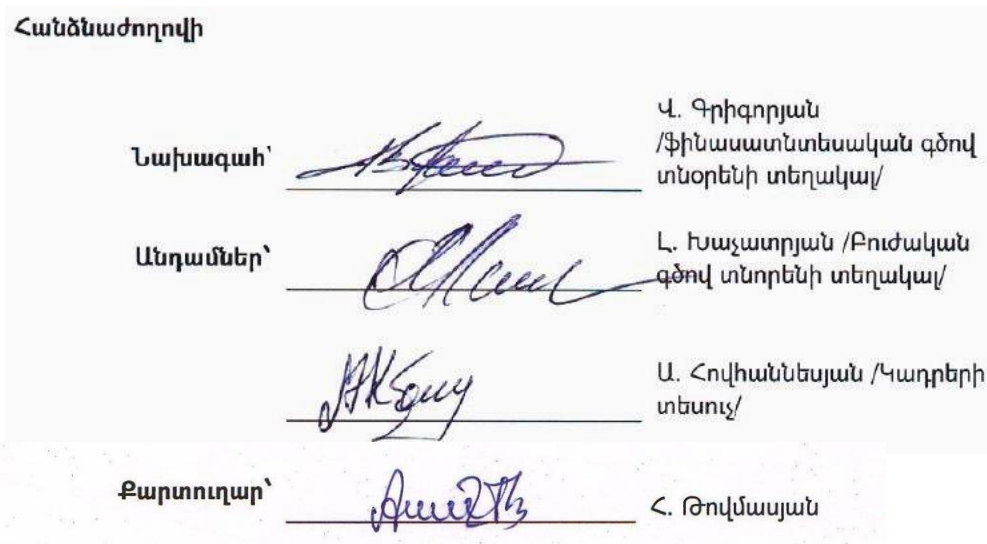 Հանձնաժողովի
Նախագահ՝
Վ. Գրիգորյան
/ֆինասատնտեսական գծով
տնօրենի տեղակալ/
Անդամներ՝
Լ. Խաչատրյան /Բուժական
գծով տնորենի տեղակալ/
Ա. Հովհաննեսյան /Կադրերի
տեսուչ/
Քարտուղար՝
Հ. Թովմասյան